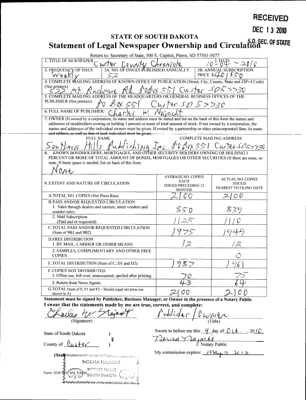 RECEIVED
DEC 13 2010
S.D. SEC. OF STATE
STATE OF SOUTH DAKOTA
Statement of Legal Newspaper Ownership and Circulation
Return to: Secretary of State, 500 E. Capitol, Pierre, SD 57501-5077
1. TITLE OF NEWSPAPER
Custer County Chronicle
2. DATE
10-04-2010
3. FREQUENCY OF ISSUE
Weekly
3A. NO. OF ISSUES PUBLISHED ANNUALLY
52
3B. ANNUAL SUBSCRIPTION PRICE
4. COMPLETE MAILING ADDRESS OF KNOWN OFFICE OF PUBLICATION (Street, City, County, State and ZIP+4 Code) (Not printers)
522 Mt Rushmore Rd PO Box 551 Custer SD 57730
5. COMPLETE MAILING ADDRESS OF THE HEADQUARTERS OR GENERAL BUSINESS OFFICES OF THE PUBLISHER (Not printers)
PO Box 551 Custer SD 57730
6. FULL NAME OF PUBLISHER:
Charles W. Najacht
7. OWNER (If owned by a corporation, its name and address must be stated and list on the back of this form the names and addresses of stockholders owning or holding 1 percent or more of total amount of stock. If not owned by a corporation, the names and addresses of the individual owners must be given. If owned by a partnership or other unincorporated firm, its name and address, as well as that of each individual must be given.
FULL NAME COMPLETE MAILING ADDRESS
Southern Hills Publishing Inc. PO Box 551 Custer SD 57730
8. KNOWN BONDHOLDERS, MORTGAGEES, AND OTHER SECURITY HOLDERS OWNING OR HOLDING 1 PERCENT OR MORE OF TOTAL AMOUNT OF BONDS, MORTGAGES OR OTHER SECURITIES (If there are none, so state. If more space is needed, list on back of this form.
None
9. EXTENT AND NATURE OF CIRCULATION
AVERAGE NO. COPIES EACH ISSUES PRECEDING 12 MONTHS
ACTUAL NO. COPIES ISSUED NEAREST TO FILING DATE
A. TOTAL NO. COPIES (Net Press Run) 2100 2100
B. PAID AND/OR REQUESTED CIRCULATION
1. Sales through dealers and carriers, street vendors and counter sales. 850 839
2. Mail Subscription (Paid and or requested) 1125 1110
C. TOTAL PAID AND/OR REQUESTED CIRCULATION (Sum of 9B1 and 9B2) 1975 1949
D. FREE DISTRIBUTION
1. BY MAIL, CARRIER OR OTHER MEANS 12 12
2. SAMPLES, COMPLIMENTARY AND OTHER FREE COPIES 0 0
E. TOTAL DISTRIBUTION (Sum of C, D1 and D2) 1987 1961
F. COPIES NOT DISTRIBUTED
1. Office use, left over, unaccounted, spoiled after printing 70 75
2. Return from News Agents 43 64
G. TOTAL (Sum of E, F1 and F2 - Should equal net press run shown in A) 2100 2100
Statement must be signed by Publisher, Business Manager, or Owner in the presence of a Notary Public
I swear that the statements made by me are true, correct, and complete:
Charles W. Najacht
(Signature)
Publisher / Owner
(Title)
State of South Dakota )
County of Custer )
Sworn to before me this 4 day of Oct. 2010.
Norma Najacht
Notary Public
My commission expires:
NORMA NAJACHT
SOUTH DAKOTA